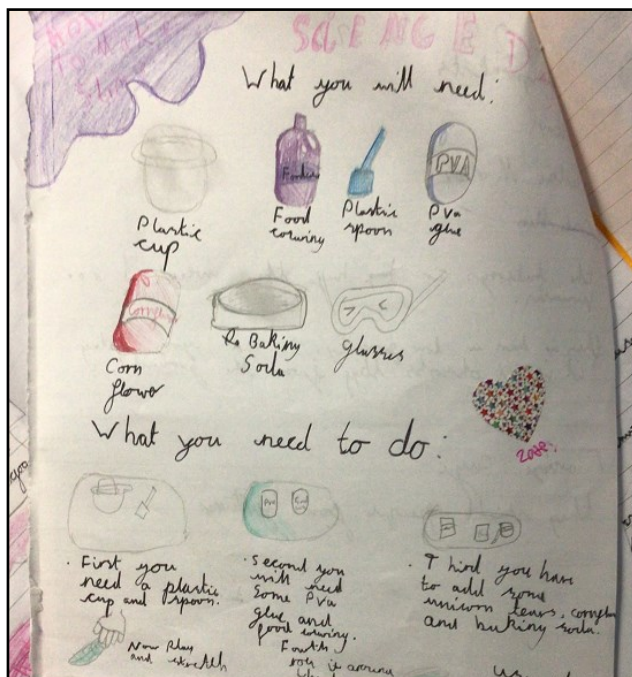 How
To Make
Slime
SCIENCE D
What you will need:
Plastic
cup
Food
Food
coluring
Plastic
spoon
PVA
Pva
glue
Corn
flower
Ba Baking
Soda
glasses
What you need to do:
zoe
Pva
. First you
need a plastic
cup and spoon.
. Second you
will need
Some PVa
glue and
food coluring.
. Third you have
to add some
unicorn tears, cornflour
and baking soda.
Now play
and stretch
Fourth
you
around